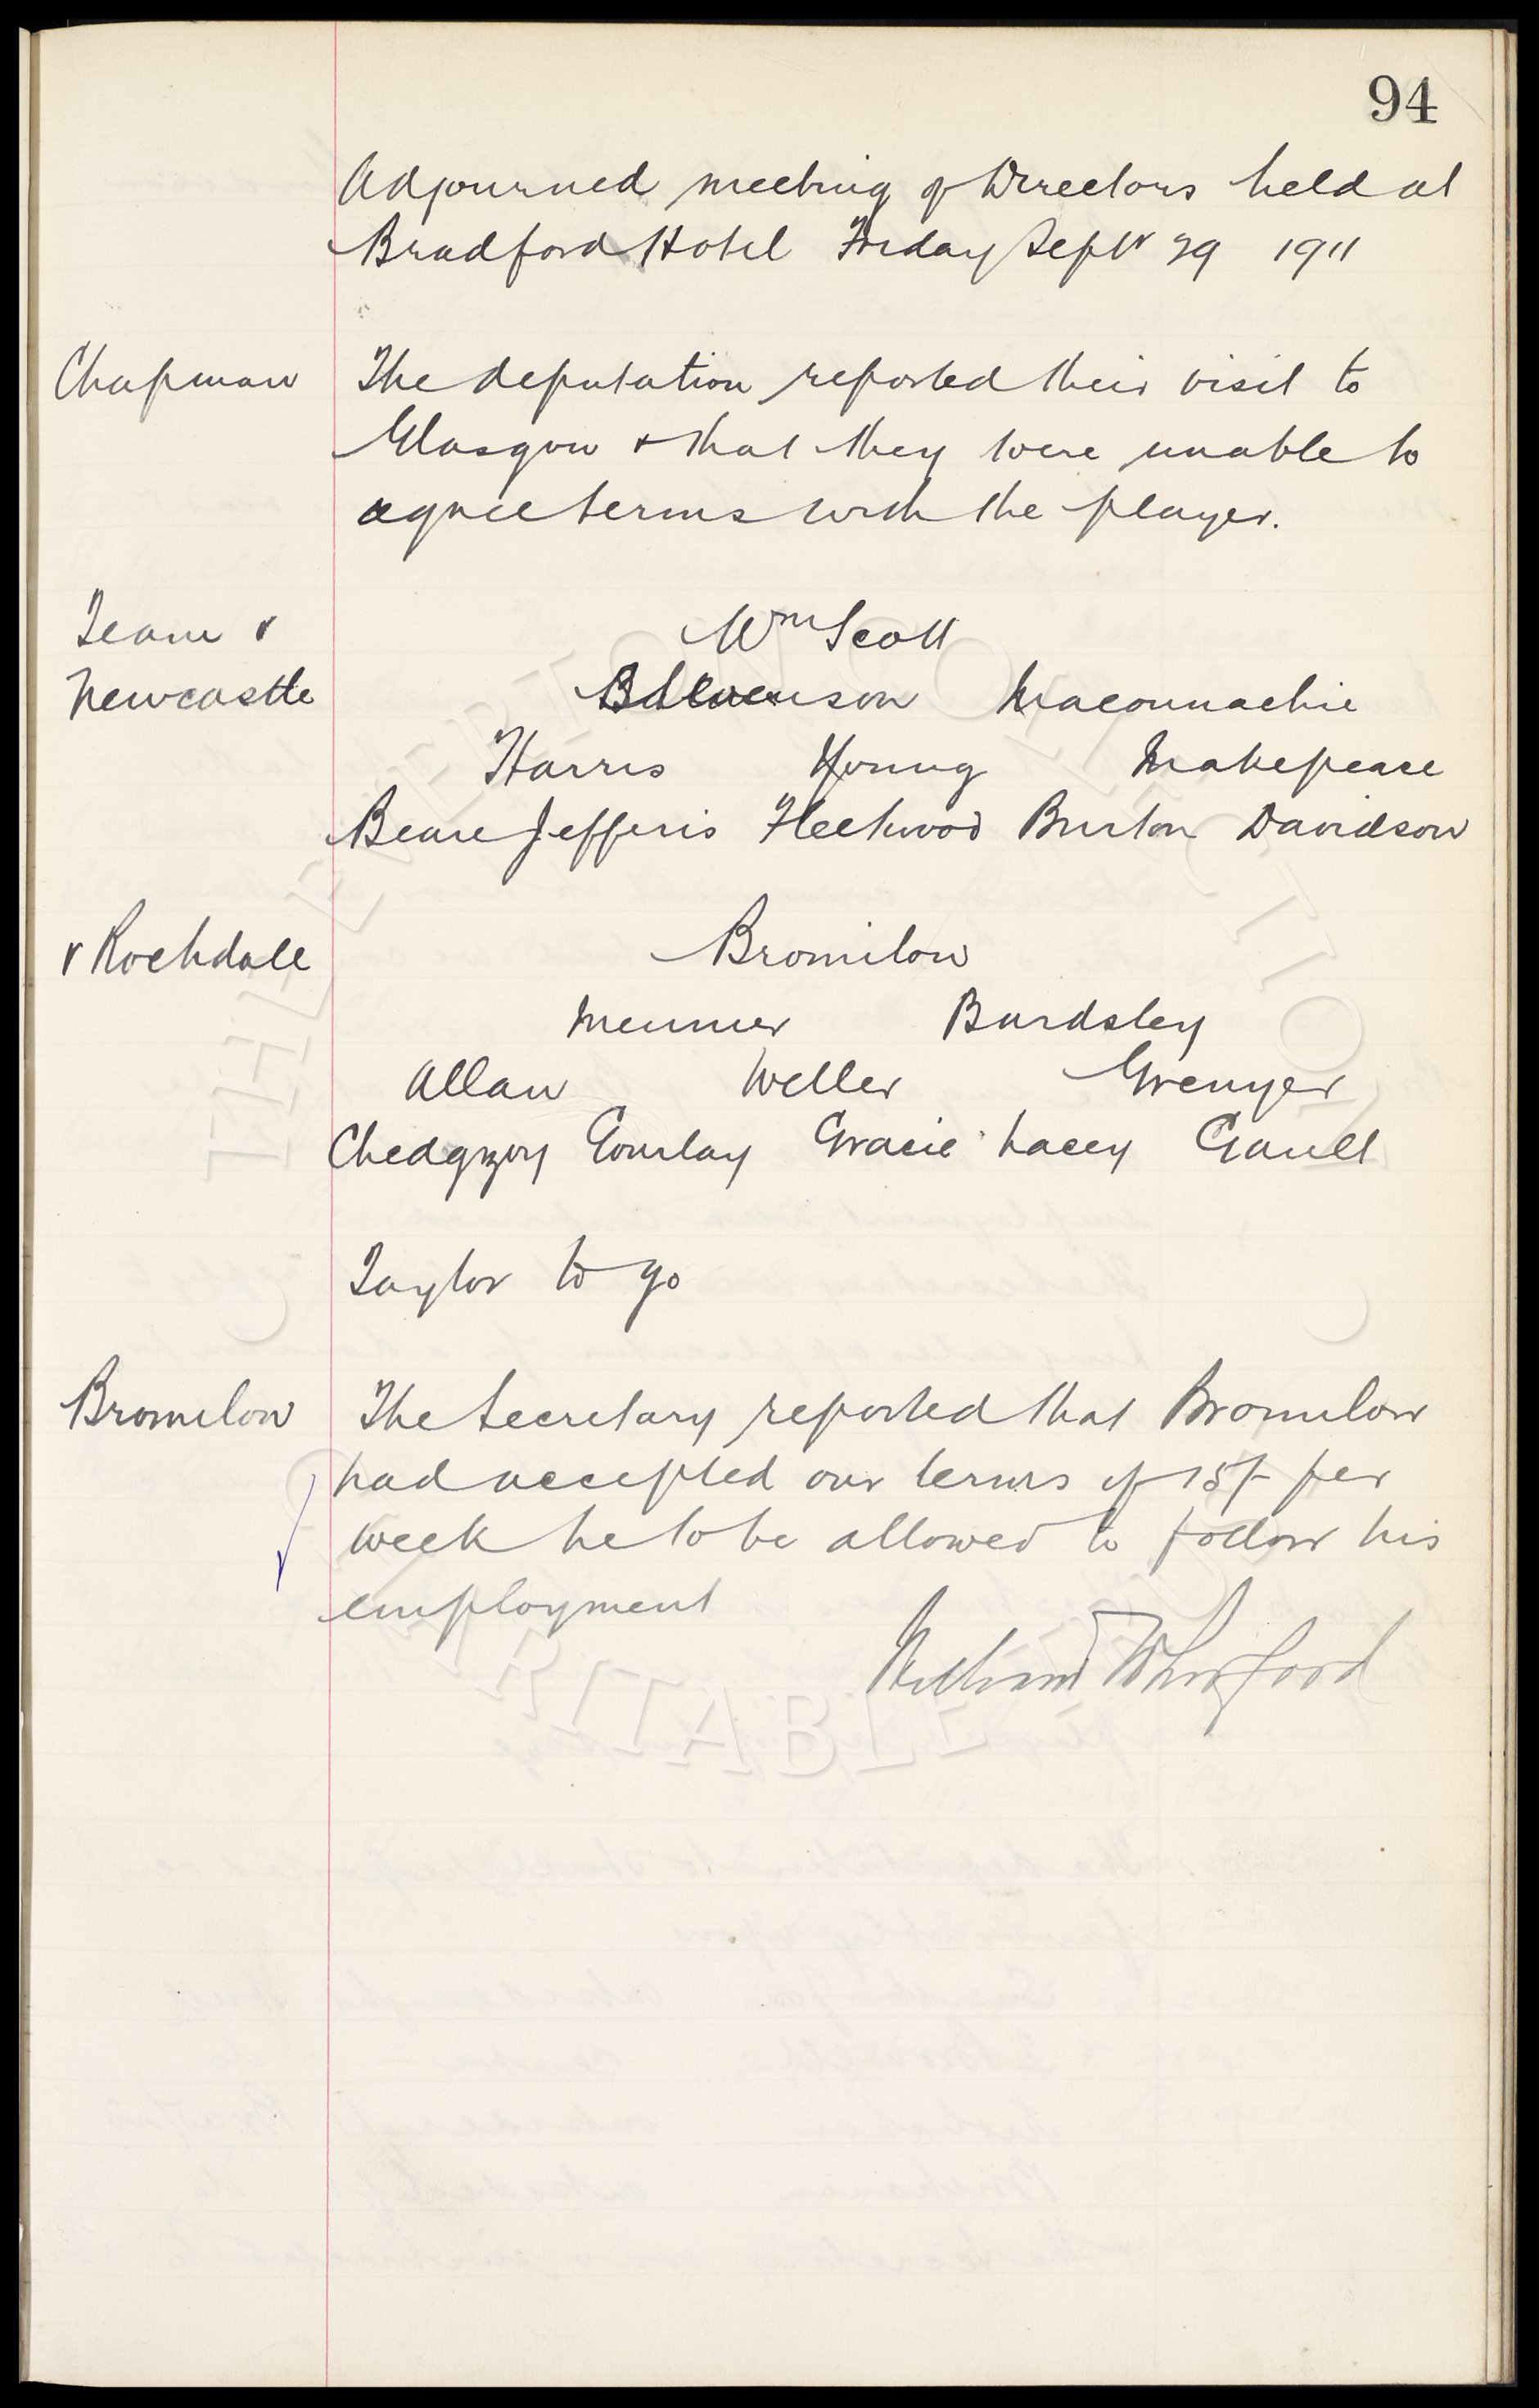 94
Adjourned meeting of Directors held at
Bradford Hotel Friday Septr 29 1911
Chapman The deputation reported their visit to
Glasgow & that they were unable to
agree terms with the player.
Team v Wm Scott
Newcastle Stevenson Maconnachie
Harris Young Makepeace
Beare Jefferis Fleetwood Burton Davidson
v Rochdale Bromilow
Meunier Bardsley
Allan Weller Grenyer
Chedgzoy Gourlay Gracie Lacey Gault
Taylor to go
Bromilow The Secretary reported that Bromilow
had accepted our terms of 15/- per
week he to be allowed to follow his
employment
William Whifford
THE EVERTON COLLECTION
CHARITABLE TRUST